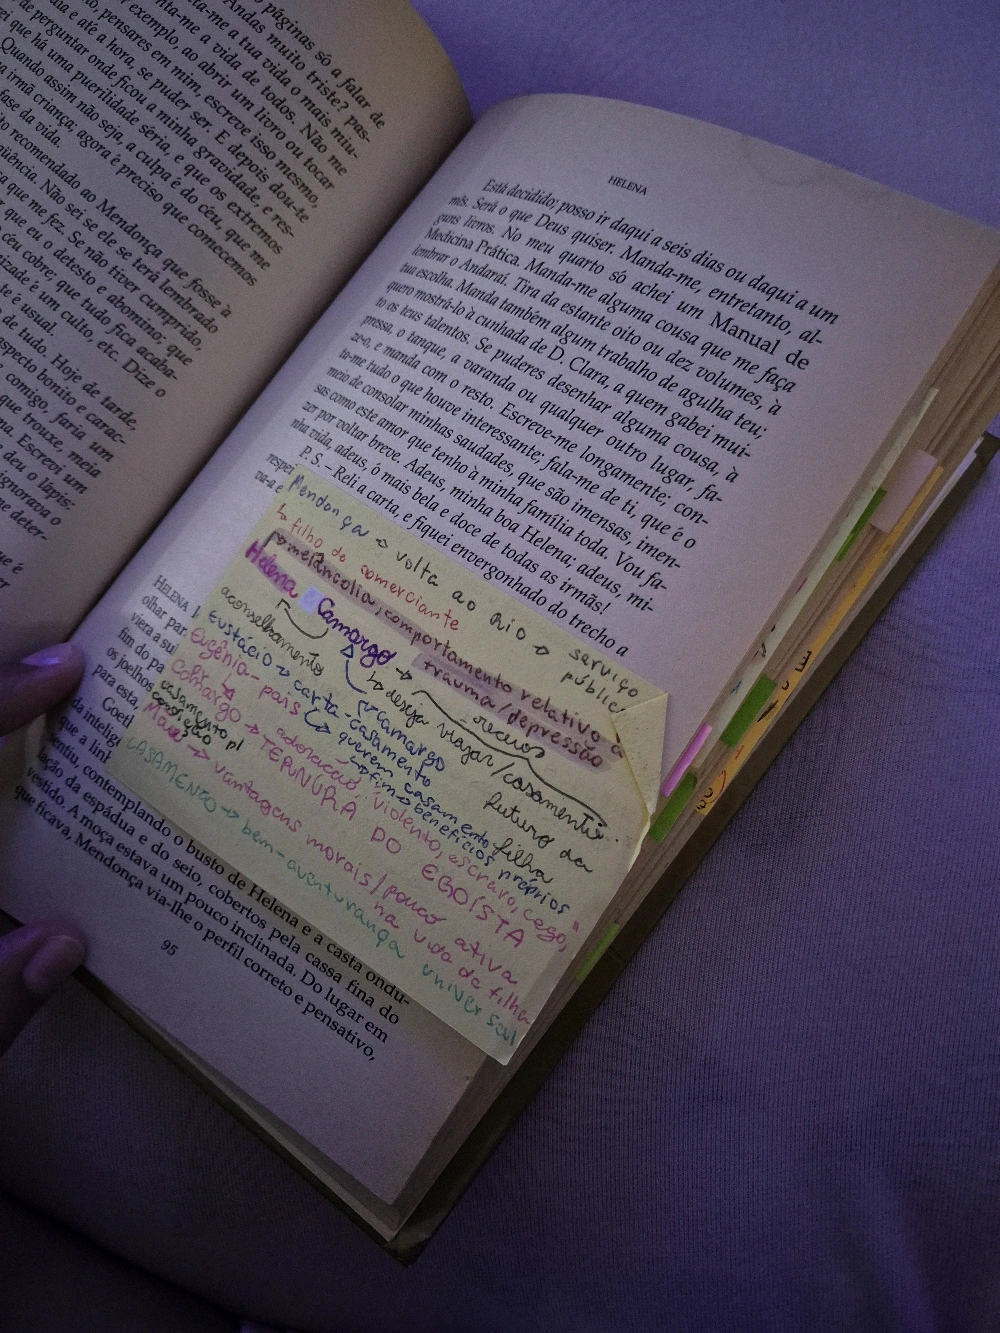 páginas só a falar de
Andas muito triste? pas-
ta-me a tua vida o mais miu-
nta-me a vida de todos. Não me
exemplo, ao abrir um livro ou tocar
, pensares em mim, escreve isso mesmo,
e até a hora, se puder ser. E depois dou-te
de perguntar onde ficou a minha gravidade, e res-
ei que há uma puerilidade séria, e que os extremos
Quando assim não seja, a culpa é do céu, que me
irmã criança; agora é preciso que comecemos
fase da vida.
recomendado ao Mendonça que fosse à
qüência. Não sei se ele se terá lembrado
que me fez. Se não tiver cumprido,
que eu o detesto e abomino; que
céu cobre; que tudo fica acaba-
izade é um culto, etc. Dize o
te é usual.
de tudo. Hoje de tarde,
specto bonito e carac-
, comigo, faria um
que trouxe, meia
na. Escrevi um
deu o lápis;
ignorava o
me deter-
HELENA
Está decidido; posso ir daqui a seis dias ou daqui a um
mês. Será o que Deus quiser. Manda-me, entretanto, al-
guns livros. No meu quarto só achei um Manual de
Medicina Prática. Manda-me alguma cousa que me faça
lembrar o Andaraí. Tira da estante oito ou dez volumes, à
tua escolha. Manda também algum trabalho de agulha teu;
quero mostrá-lo à cunhada de D. Clara, a quem gabei mui-
to os teus talentos. Se puderes desenhar alguma cousa, à
pressa, o tanque, a varanda ou qualquer outro lugar, fa-
ze-o, e manda com o resto. Escreve-me longamente; con-
ta-me tudo o que houve interessante; fala-me de ti, que é o
meio de consolar minhas saudades, que são imensas, imen-
sas como este amor que tenho à minha família toda. Vou fa-
zer por voltar breve. Adeus, minha boa Helena; adeus, mi-
nha vida, adeus, ó mais bela e doce de todas as irmãs!
P. S. – Reli a carta, e fiquei envergonhado do trecho a
respei
Mendonça → volta ao Rio → serviço
público
↳ filho do comerciante
→ melancolia; comportamento relativo a
trauma/depressão
Helena & Camargo
→ receios
↳ deseja viajar/casamento
futuro da
filha
aconselhamento
Eustácio → carta - casamento
c/ Camargo
Eugênia - pais → querem casamento
→ fim → benefícios próprios
Camargo → adoração, "violento, escravo, cego,"
TERNURA DO EGOÍSTA
casamento p/
Mãe → vantagens morais/pouco ativa
na vida da filha
CASAMENTO → bem-aventurança universal
HELENA
olhar par
viera a sul
fim do pa
os joelhos
para esta,
Goeth
da intelig
que a linh
contemplando o busto de Helena e a casta ondu-
lação da espádua e do seio, cobertos pela cassa fina do
vestido. A moça estava um pouco inclinada. Do lugar em
que ficava, Mendonça via-lhe o perfil correto e pensativo,
95